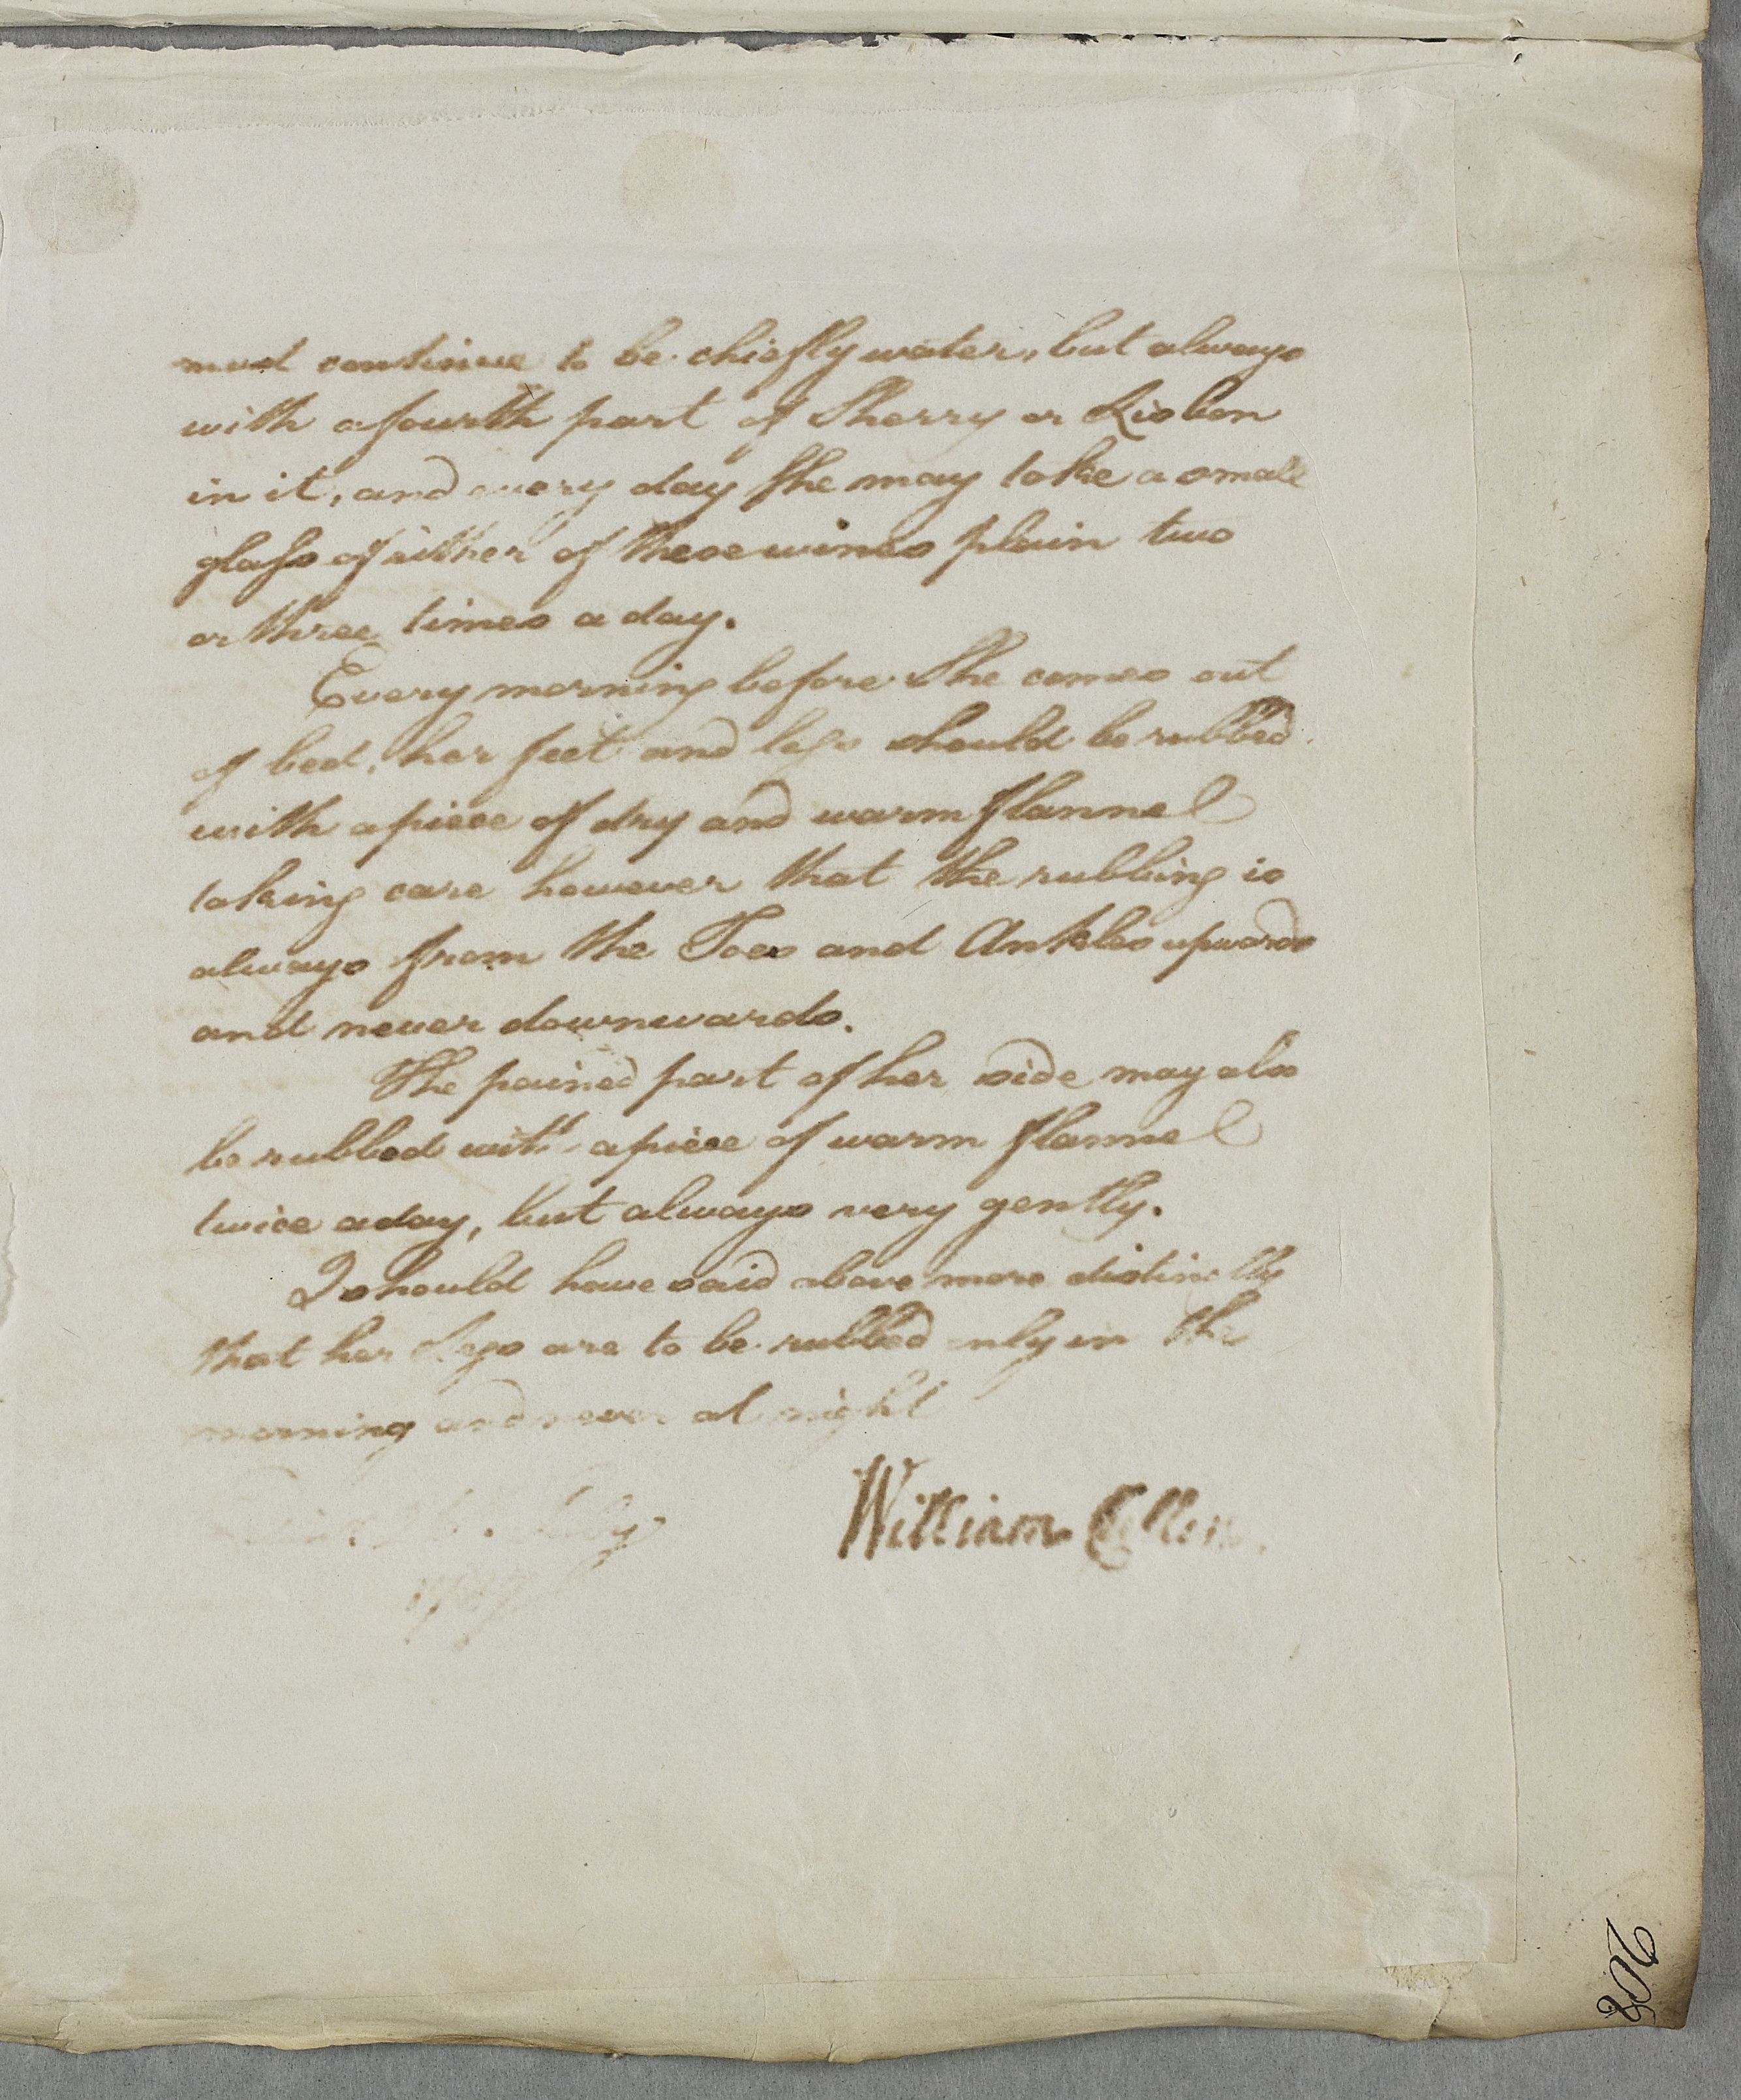 must continue to be chiefly water, but always
with a fourth part of Sherry or Lisbon
in it, and every day She may take a small
glass of either of these wines plain two
or three times a day.
Every morning before She comes out
of bed, her feet and legs should be rubbed
with a piece of dry and warm flannel
taking care however that the rubbing is
always from the Toes and Ankles upwards
and never downwards.
The pained part of her side may also
be rubbed with a piece of warm flannel
twice a day, but always very gently.
I should have said above more distinctly
that her Legs are to be rubbed only in the
morning and never at night
William Cullen.
July
208